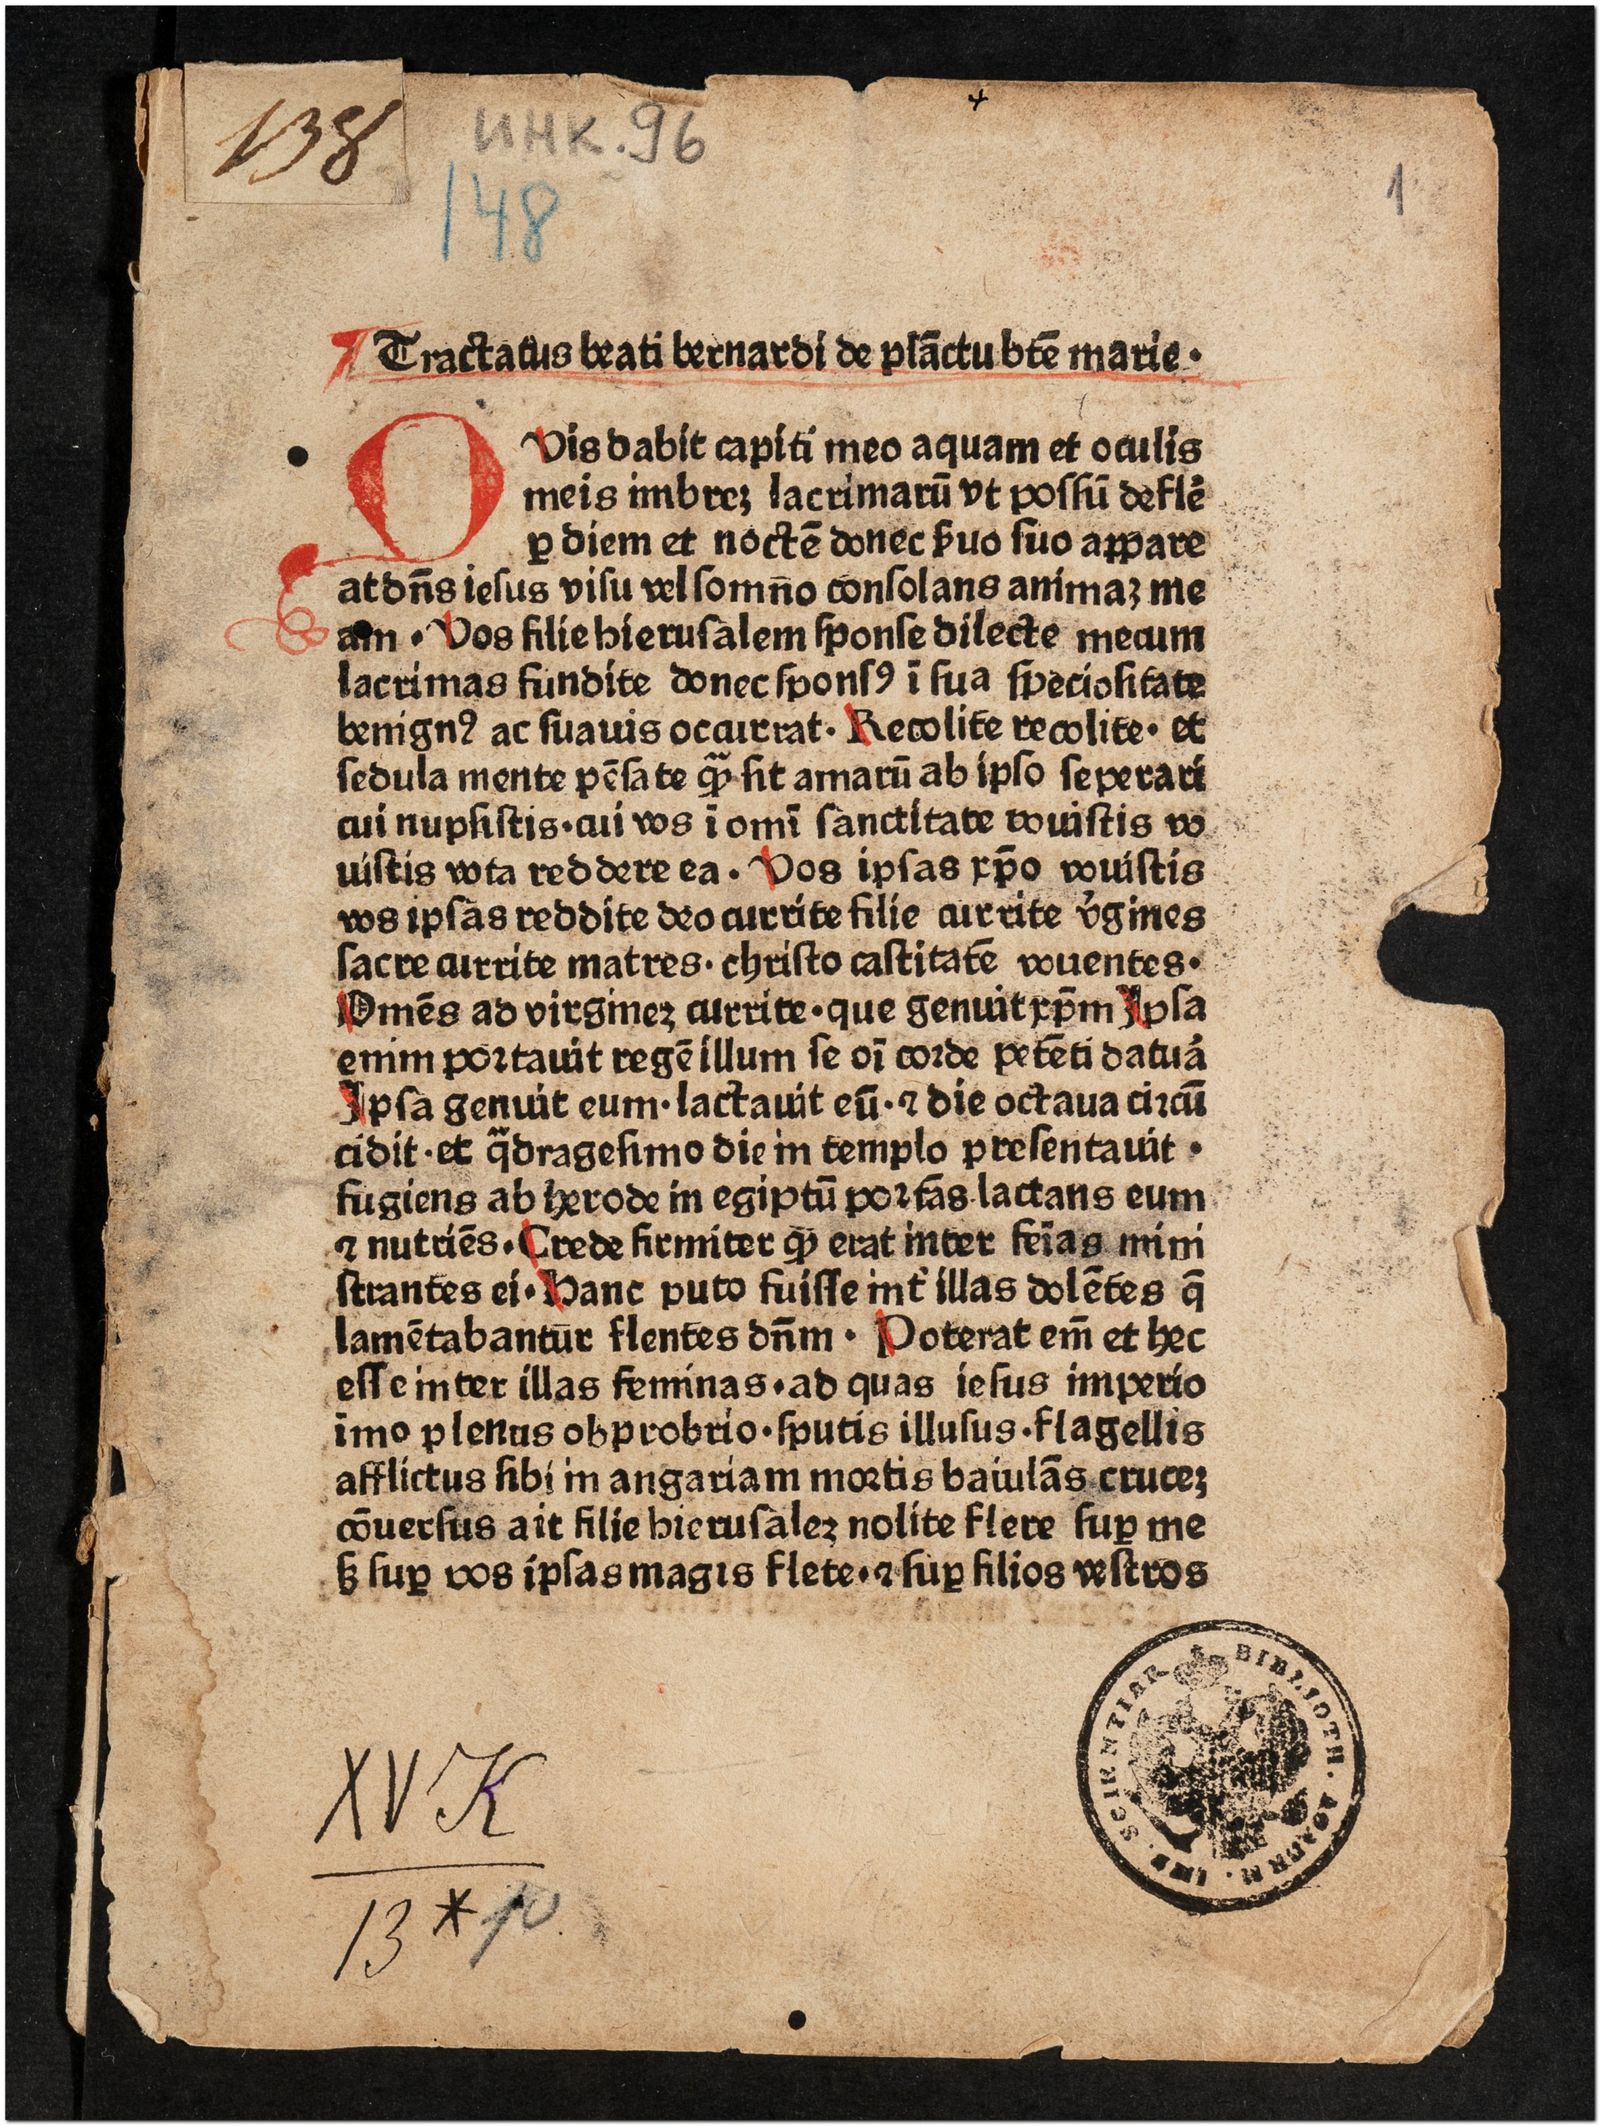 138
инк. 96
148
1
Tractatus beati bernardi de plāctu btē marie·
QVis dabit capiti meo aquam et oculis
meis imbreꝫ lacrimarū vt possū deflē
ꝑ diem et noctē donec ẜuo suo appare
at dn̄s iesus visu vel somn̄o consolans animaꝫ me
am · Vos filie hierusalem sponse dilecte mecum
lacrimas fundite donec sponsꝰ ī sua speciositate
benignꝰ ac suauis occurrat · Recolite recolite · et
sedula mente pēsate qͣꝫ sit amarū ab ipso seperari
cui nupsistis · cui vos ī omī sanctitate vouistis vo
uistis vota reddere ea · Vos ipsas xp̄o vouistis
vos ipsas reddite deo currite filie currite v̓gines
sacre currite matres · christo castitatē vouentes ·
Omēs ad virgineꝫ currite · que genuit xp̄m Ipsa
enim portauit regē illum se oī corde petēti daturū
Ipsa genuit eum · lactauit eū · ⁊ die octaua circū
cidit · et qͣdragesimo die in templo presentauit ·
fugiens ab herode in egiptū portās lactans eum
⁊ nutriēs · Crede firmiter ꝙ erat inter feīas mini
strantes ei · Hanc puto fuisse int̓ illas dolētes q̄
lamētabantur flentes dn̄m · Poterat em̄ et hec
esse inter illas feminas · ad quas iesus imperio
imo plenus obprobrio · sputis illusus · flagellis
afflictus sibi in angariam mortis baiulās cruceꝫ
cōuersus ait filie hierusaleꝫ nolite flere suꝑ me
sꝫ suꝑ vos ipsas magis flete · ⁊ suꝑ filios vestros
BIBLIOTH. ACADEM. IMP. SCIENTIAR
XV K
13 *